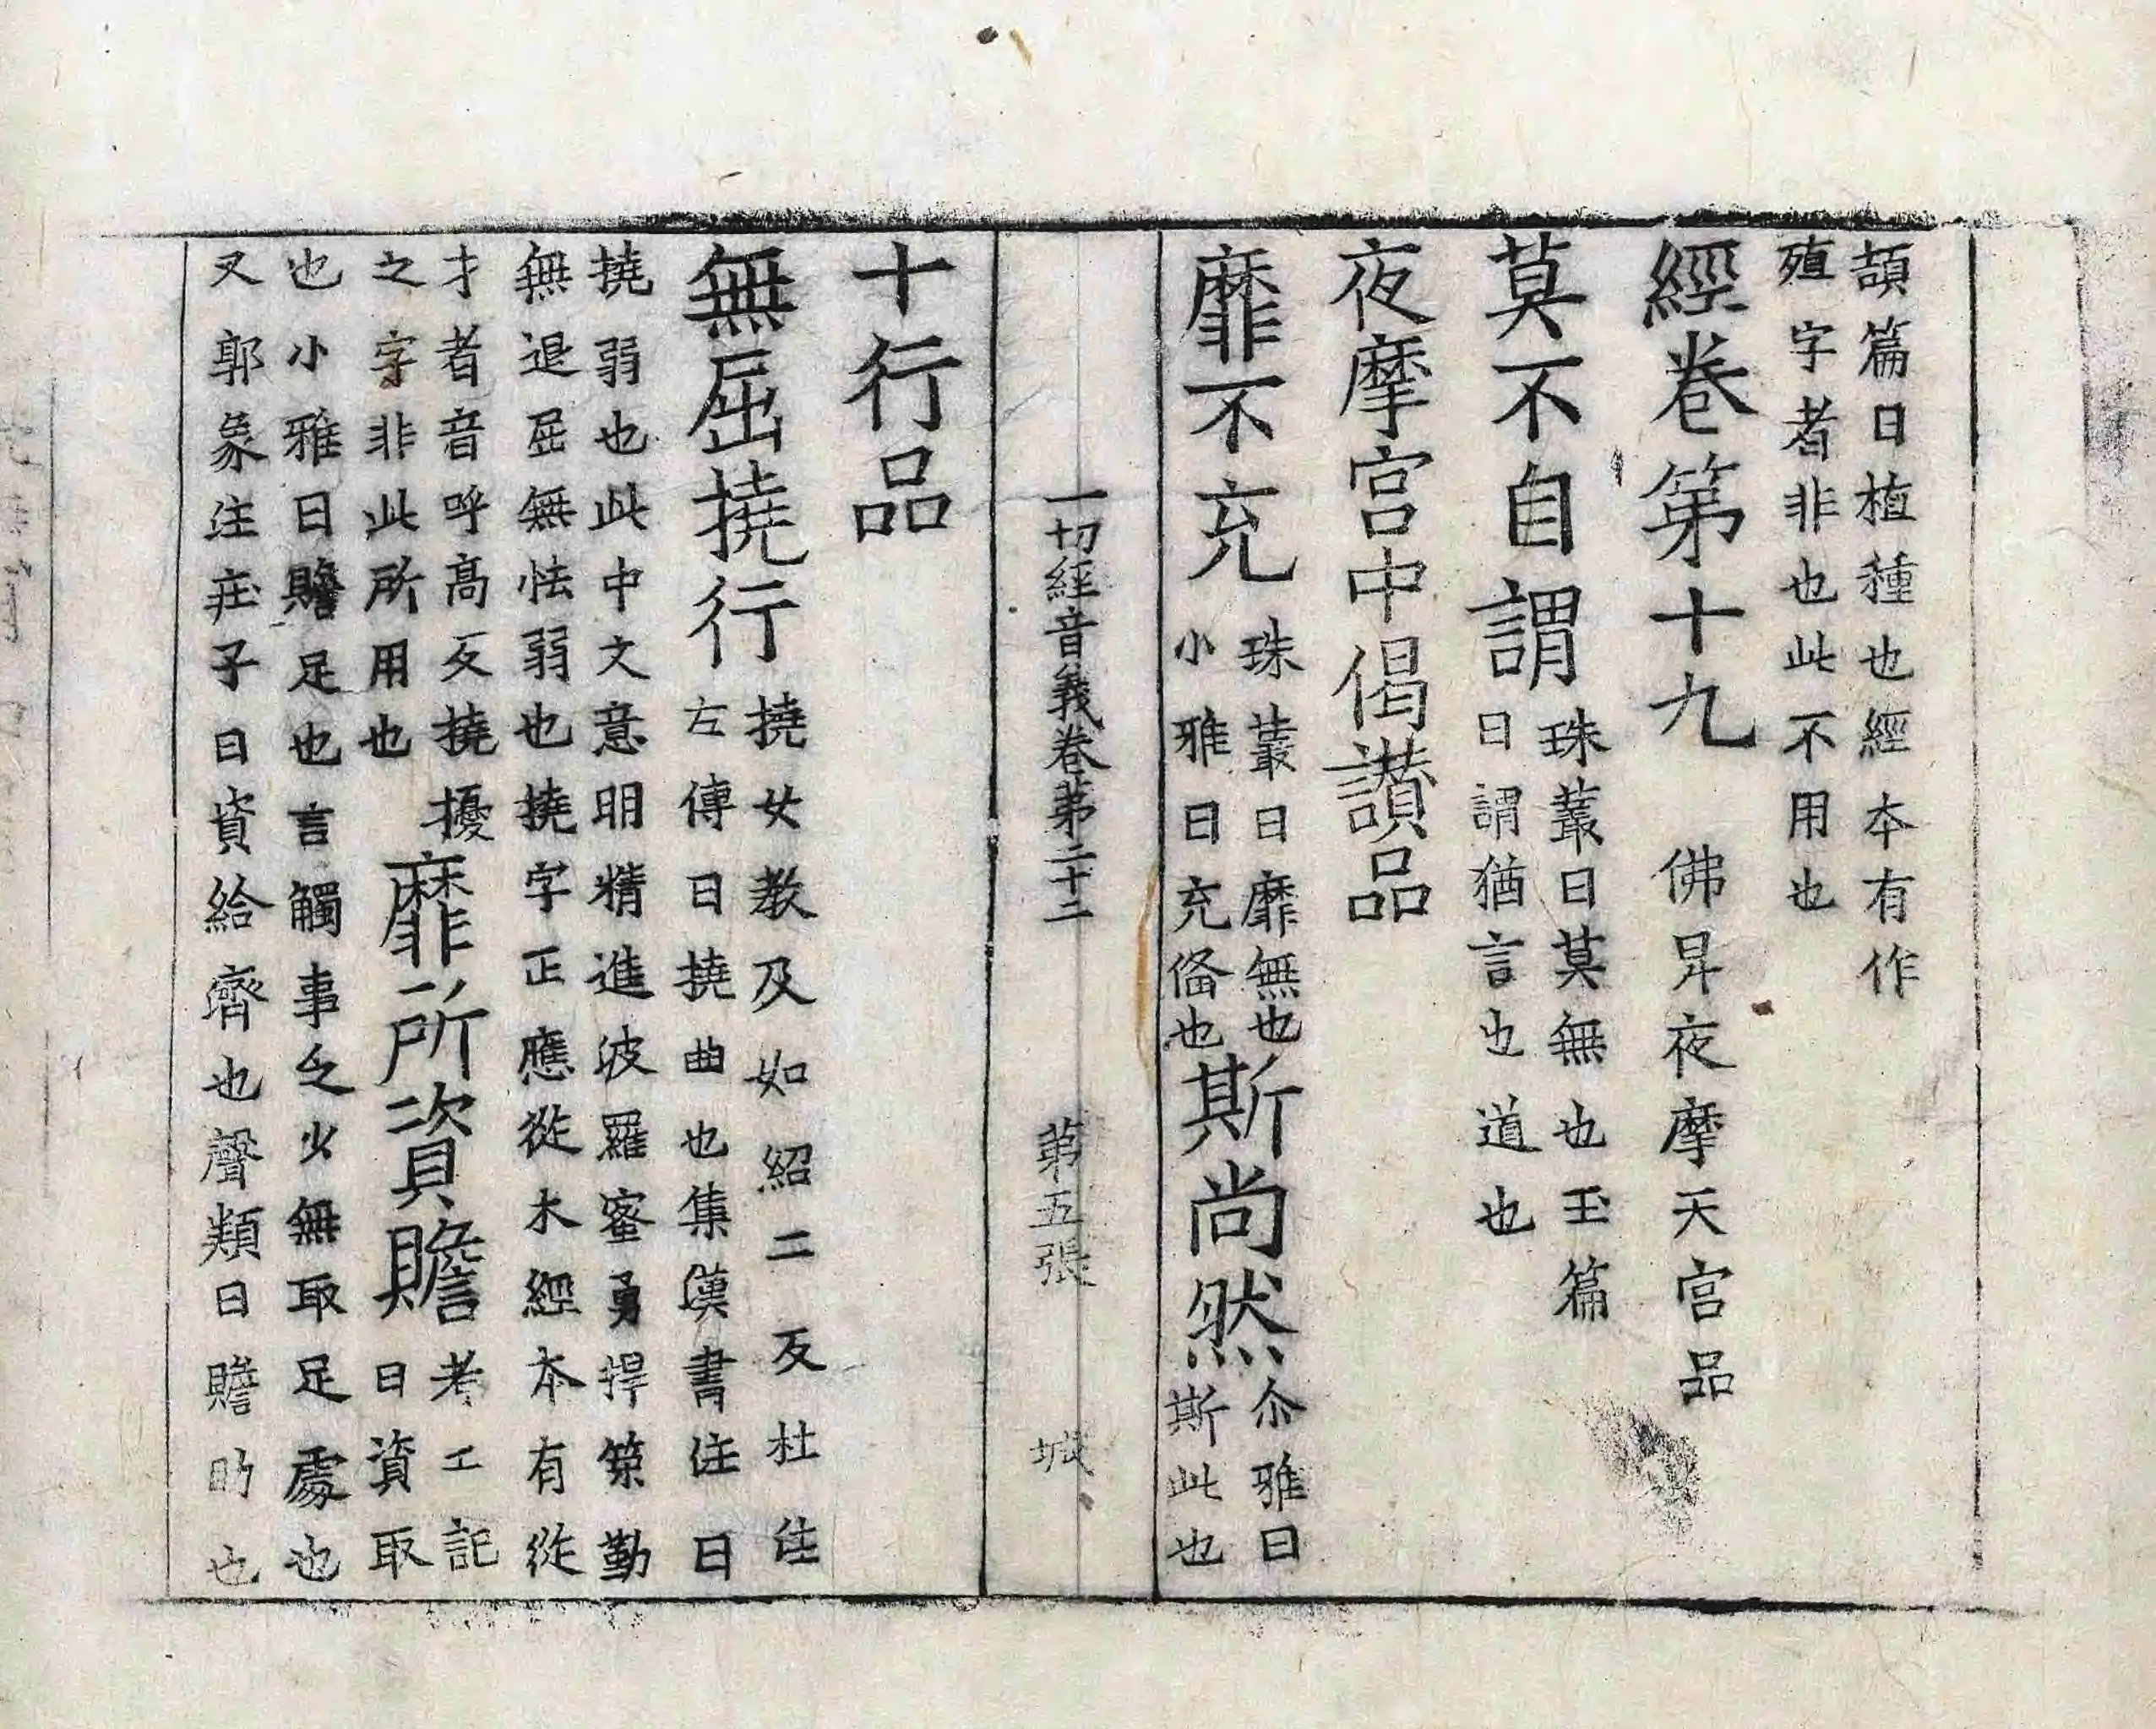 頡篇曰植種也經本有作
殖字者非也此不用也
經卷第十九 佛昇夜摩天宮品
莫不自謂
珠叢曰莫無也玉篇
曰謂猶言也道也
夜摩宮中偈讃品
靡不充
珠叢曰靡無也
小雅曰充俻也
斯尚然
尒雅曰
斯此也
一切經音義卷第二十二 第五張 城
十行品
無屈撓行
撓女教及如紹二反杜注
左傳曰撓曲也集漢書注曰
撓弱也此中文意明精進波羅蜜勇捍策勤
無退屈無怯弱也撓字正應從木經本有從
才者音呼髙反撓擾
之字非此所用也
靡所資贍
考工記
曰資取
也小雅曰贍足也言觸事乏少無取足處也
又郭象注莊子曰資給濟也聲類曰贍助也